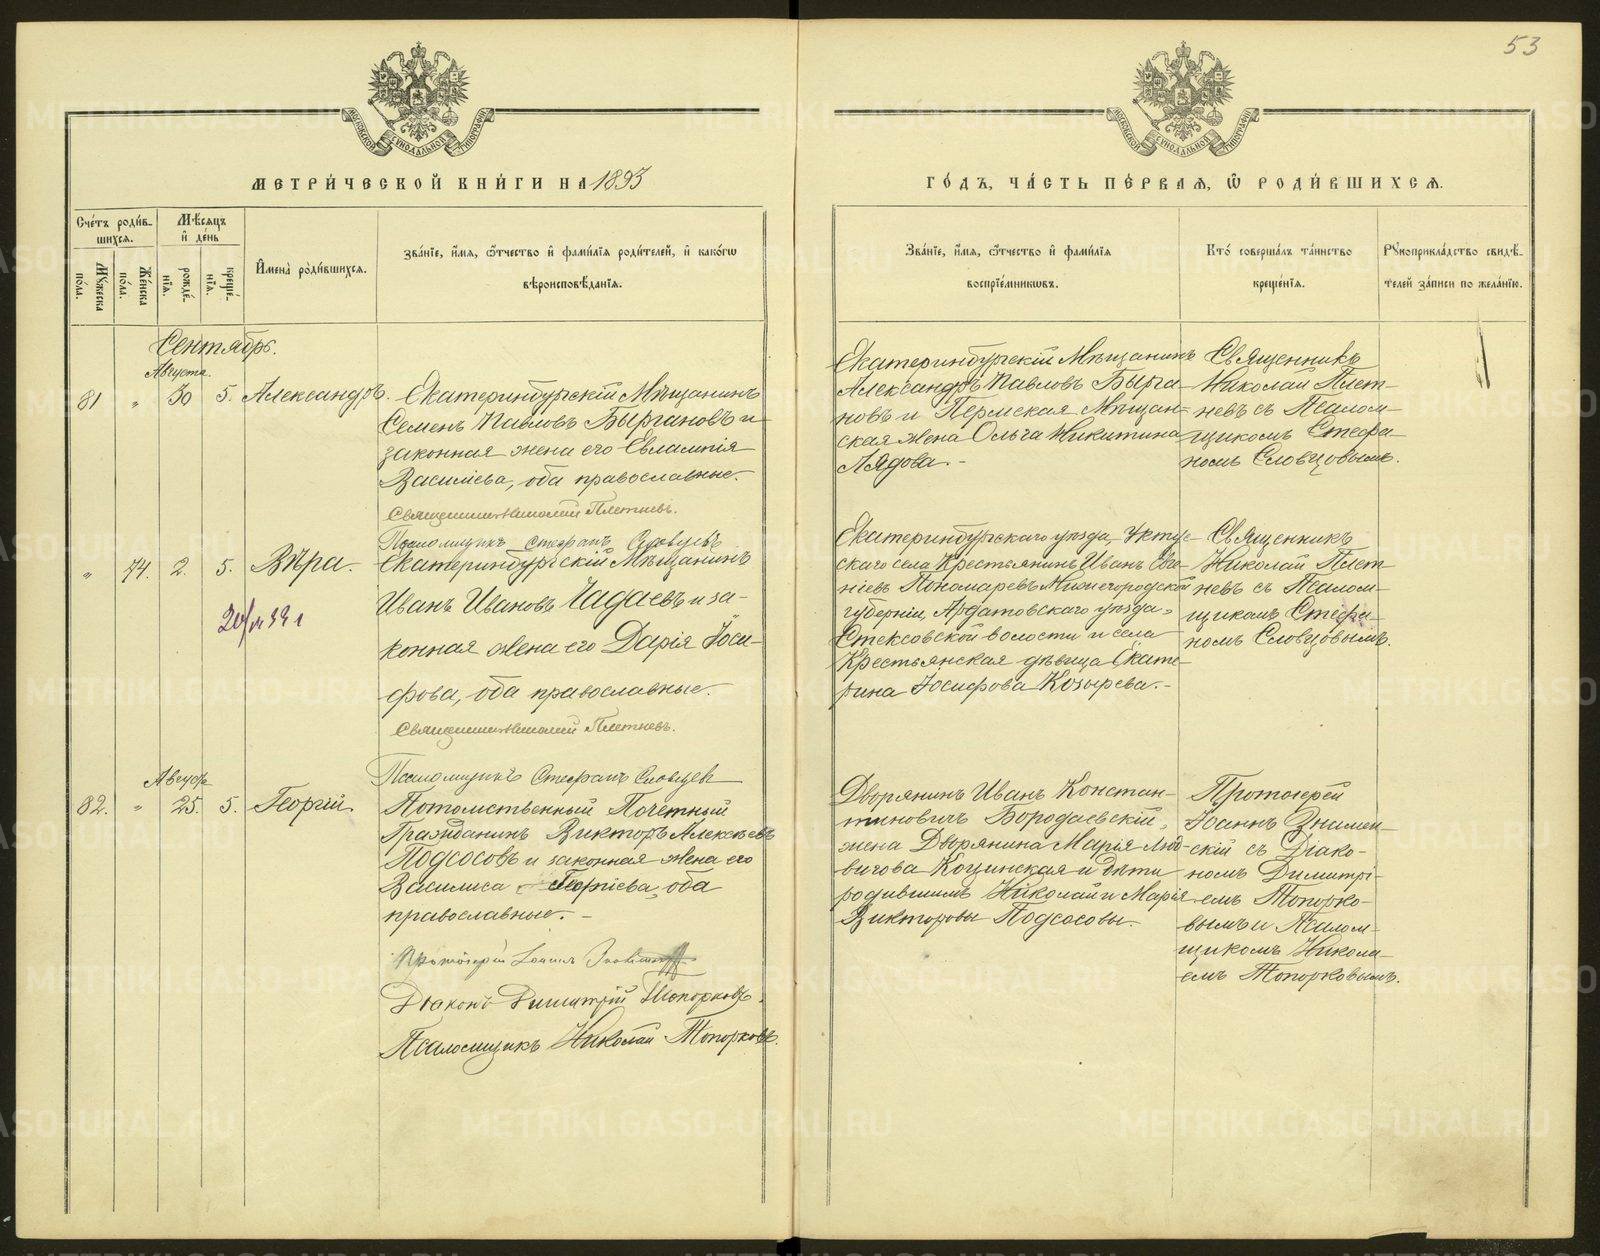 53
МОСКОВСКОЙ СѴНОДАЛЬНОЙ ТИПОГРАФІИ
МОСКОВСКОЙ СѴНОДАЛЬНОЙ ТИПОГРАФІИ
МЕТРИ́ЧЕСКОЙ КНИ́ГИ НА 1893
ГО́ДЪ, ЧА́СТЬ ПЕ́РВАЯ, Ѡ҆ РОДИ́ВШИХСЯ.
Сче́тъ роди́в-
шихся.
Мꙋ́жеска по́ла.
Же́нска по́ла.
Мѣ́сяцъ
и҆ де́нь
рожде́-
нїя.
креще́-
нїя.
И҆мена̀ роди́вшихся.
Зва́нїе, и҆́мя, ѻ҆́тчество и҆ фами́лїя роди́телей, и҆ како́гѡ
вѣроисповѣ́данїя.
Зва́нїе, и҆́мя, ѻ҆́тчество и҆ фами́лїя
воспрїе́мникѡвъ.
Кто̀ соверша́лъ та́инство
креще́нїя.
Рꙋкоприкла́дство свидѣ́-
телей за́писи по жела́нїю.
Сентябрь.
Августа.
81 " 30 5. Александръ.
Екатеринбургскій Мѣщанинъ
Семенъ Павловъ Быргановъ и
законная жена его Евлампія
Василіева, оба православные.
Священникъ Николай Плетневъ.
Псаломщикъ Стефанъ Словцевъ
Екатеринбургскій Мѣщанинъ
Александръ Павловъ Бырга-
новъ и Пермская Мѣщан-
ская жена Ольга Никитина
Лядова.-
Священникъ
Николай Плет-
невъ съ Псалом-
щикомъ Стефа-
номъ Словцовымъ.
" 74. 2. 5. Вѣра.
Екатеринбургскій Мѣщанинъ
Иванъ Ивановъ Чадаевъ и за-
конная жена его Дарія Іоси-
фова, оба православные.
Священникъ Николай Плетневъ.
Псаломщикъ Стефанъ Словцевъ
Екатеринбургскаго уѣзда, Уктус-
скаго села Крестьянинъ Иванъ Евге-
ніевъ Пономаревъ Нижегородской
губерніи, Ардатовскаго уѣзда,
Стексовской волости и села
Крестьянская дѣвица Екате-
рина Іосифова Козырева.-
Священникъ
Николай Плет-
невъ съ Псалом-
щикомъ Стефа-
номъ Словцовымъ.
Августа
82. " 25. 5. Георгій.
Потомственный Почетный
Гражданинъ Викторъ Алексѣевъ
Подсосовъ и законная жена его
Василиса Георгіева, оба
православные.-
Протоіерей Іоаннъ
Діаконъ Димитрій Топорковъ.
Псаломщикъ Николай Топорковъ.
Дворянинъ Иванъ Констан-
тиновичъ Бородаевскій,
жена Дворянина Марія
Коцинская и дѣти
родившимъ Николай и Марія
Викторовы Подсосовы.
Протоіерей
Іоаннъ Знамен-
скій съ Діако-
номъ Димитрі-
емъ Топорко-
вымъ и Псалом-
щикомъ Никола-
емъ Топорковымъ.
METRIKI.GASO-URAL.RU